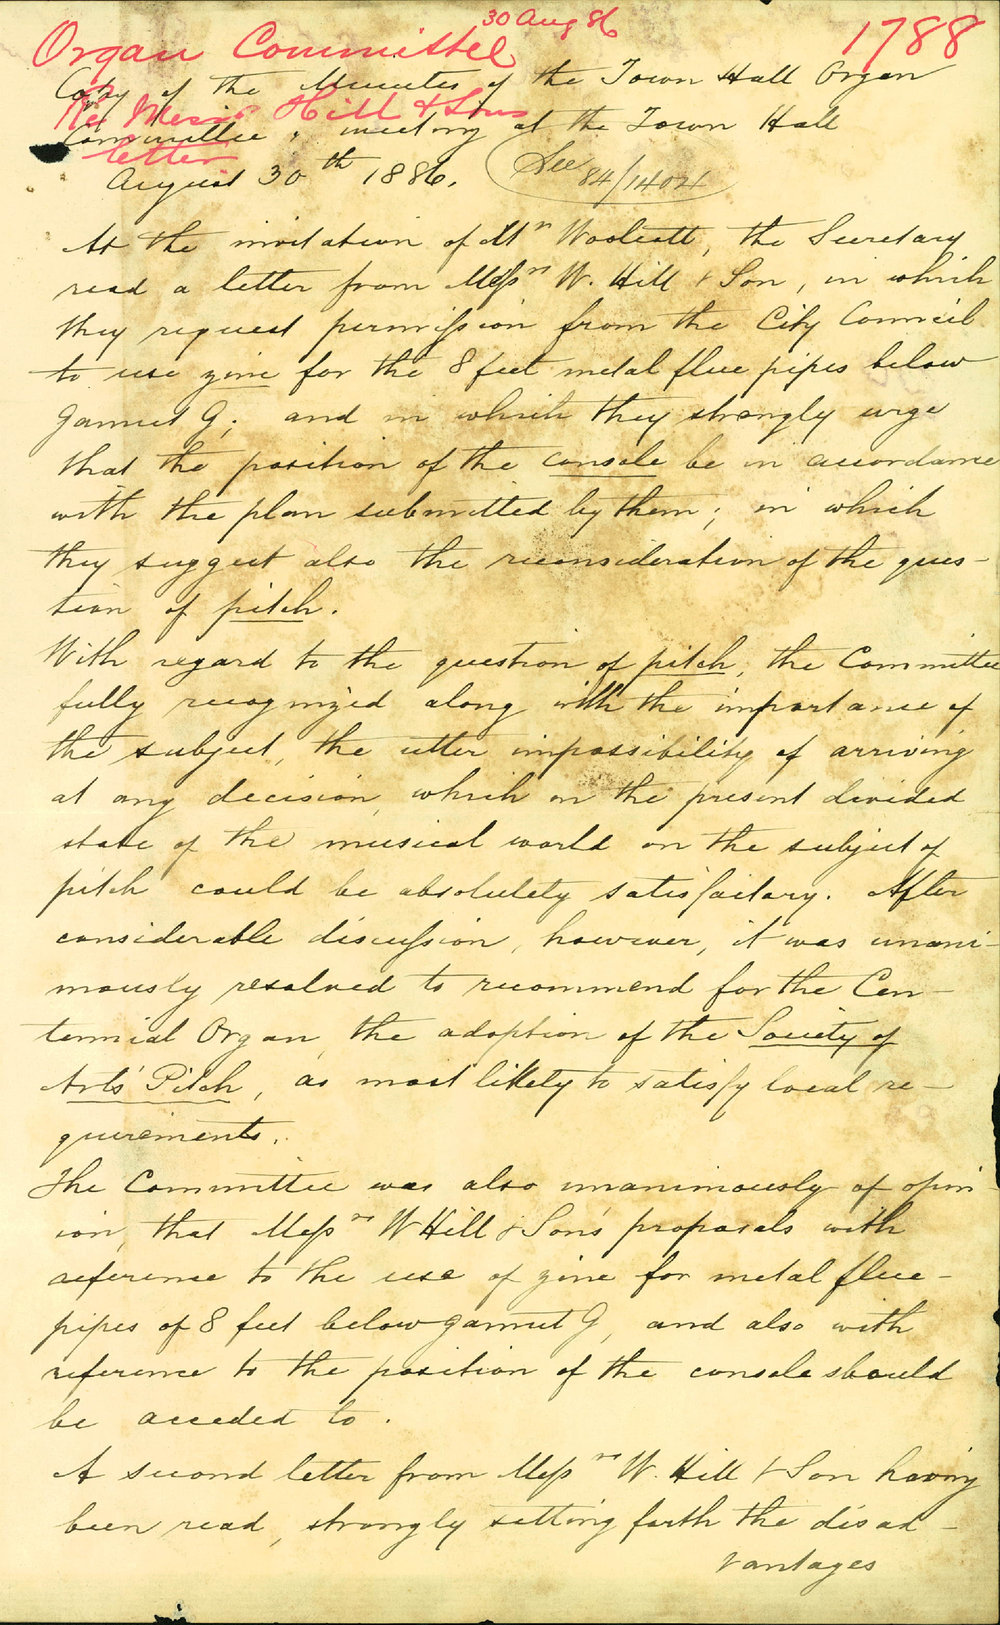 30 Aug 86
Organ Committee 1788
Copy of the Minutes of the Town Hall Organ
Re Messrs Hill & Sons
Committee, meeting at the Town Hall
letter
August 30th 1886.
See 84/1404
At the invitation of Mr Woolcott, the Secretary
read a letter from Messrs W. Hill & Son, in which
they request permission from the City Council
to use zinc for the 8 feet metal flue pipes below
gamut G; and in which they strongly urge
that the position of the console be in accordance
with the plan submitted by them; in which
they suggest also the reconsideration of the ques-
tion of pitch.
With regard to the question of pitch, the Committee
fully recognized along with the importance of
the subject, the utter impossibility of arriving
at any decision, which in the present divided
state of the musical world on the subject of
pitch could be absolutely satisfactory. After
considerable discussion, however, it was unani-
mously resolved to recommend for the Cen-
tennial Organ, the adoption of the Society of
Arts' Pitch, as most likely to satisfy local re-
quirements.
The Committee was also unanimously of opin-
ion, that Messrs W Hill & Son's proposals with
reference to the use of zinc for metal flue-
pipes of 8 feet below gamut G, and also with
reference to the position of the console should
be acceded to.
A second letter from Messrs W. Hill & Son having
been read, strongly setting forth the disad-
vantages